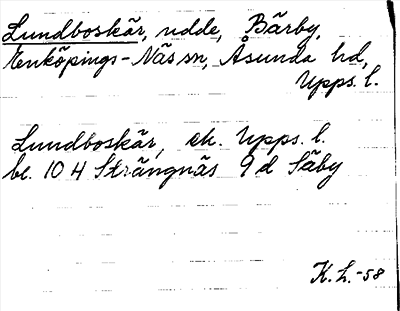 Lundboskär, udde, Bärby,
Enköpings-Näs sn, Åsunda hd,
Upps. l.
Lundboskär, ek. Upps. l.
bl. 10 H Strängnäs 9 d Säby
K.L.-58